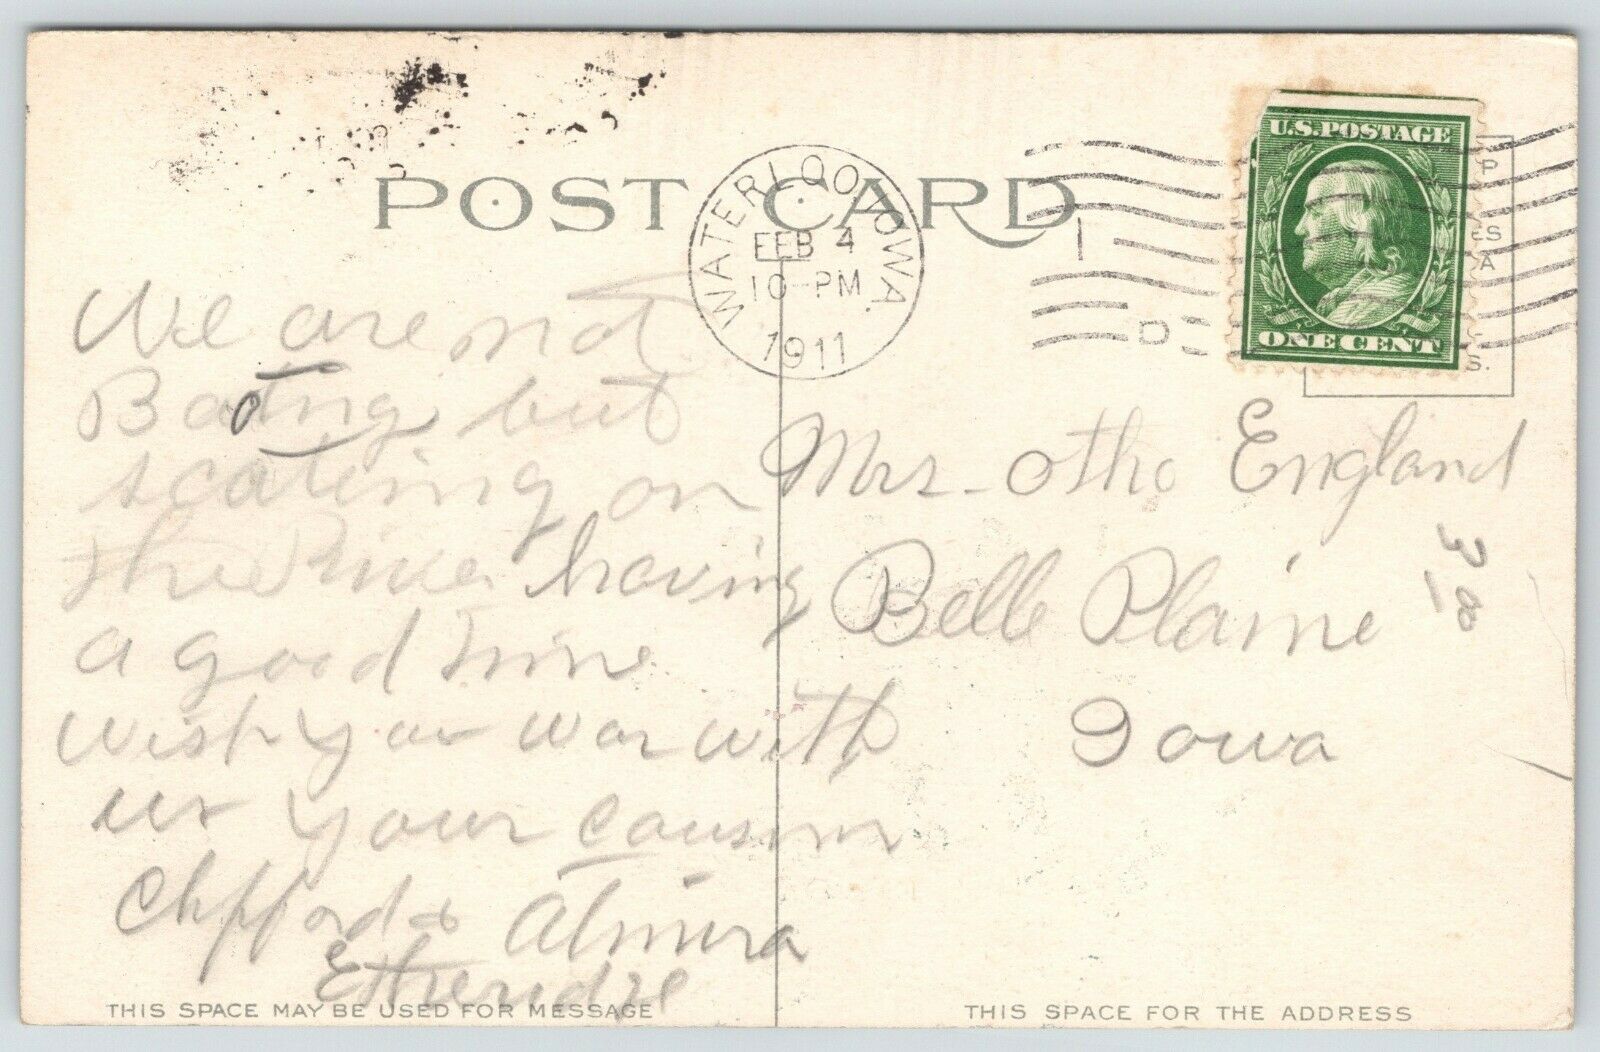 POST CARD
WATERLOO, IOWA.
FEB 4
10-PM
1911
1
D
U.S. POSTAGE
ONE CENT
P
ES
A
S.
We are not
Boating but
scating on
the River having
a good time
wish you war with
us your cousins
Clifford & Almira
Etheridge
Mrs - Otho England
Belle Plaine
Iowa
THIS SPACE MAY BE USED FOR MESSAGE
THIS SPACE FOR THE ADDRESS